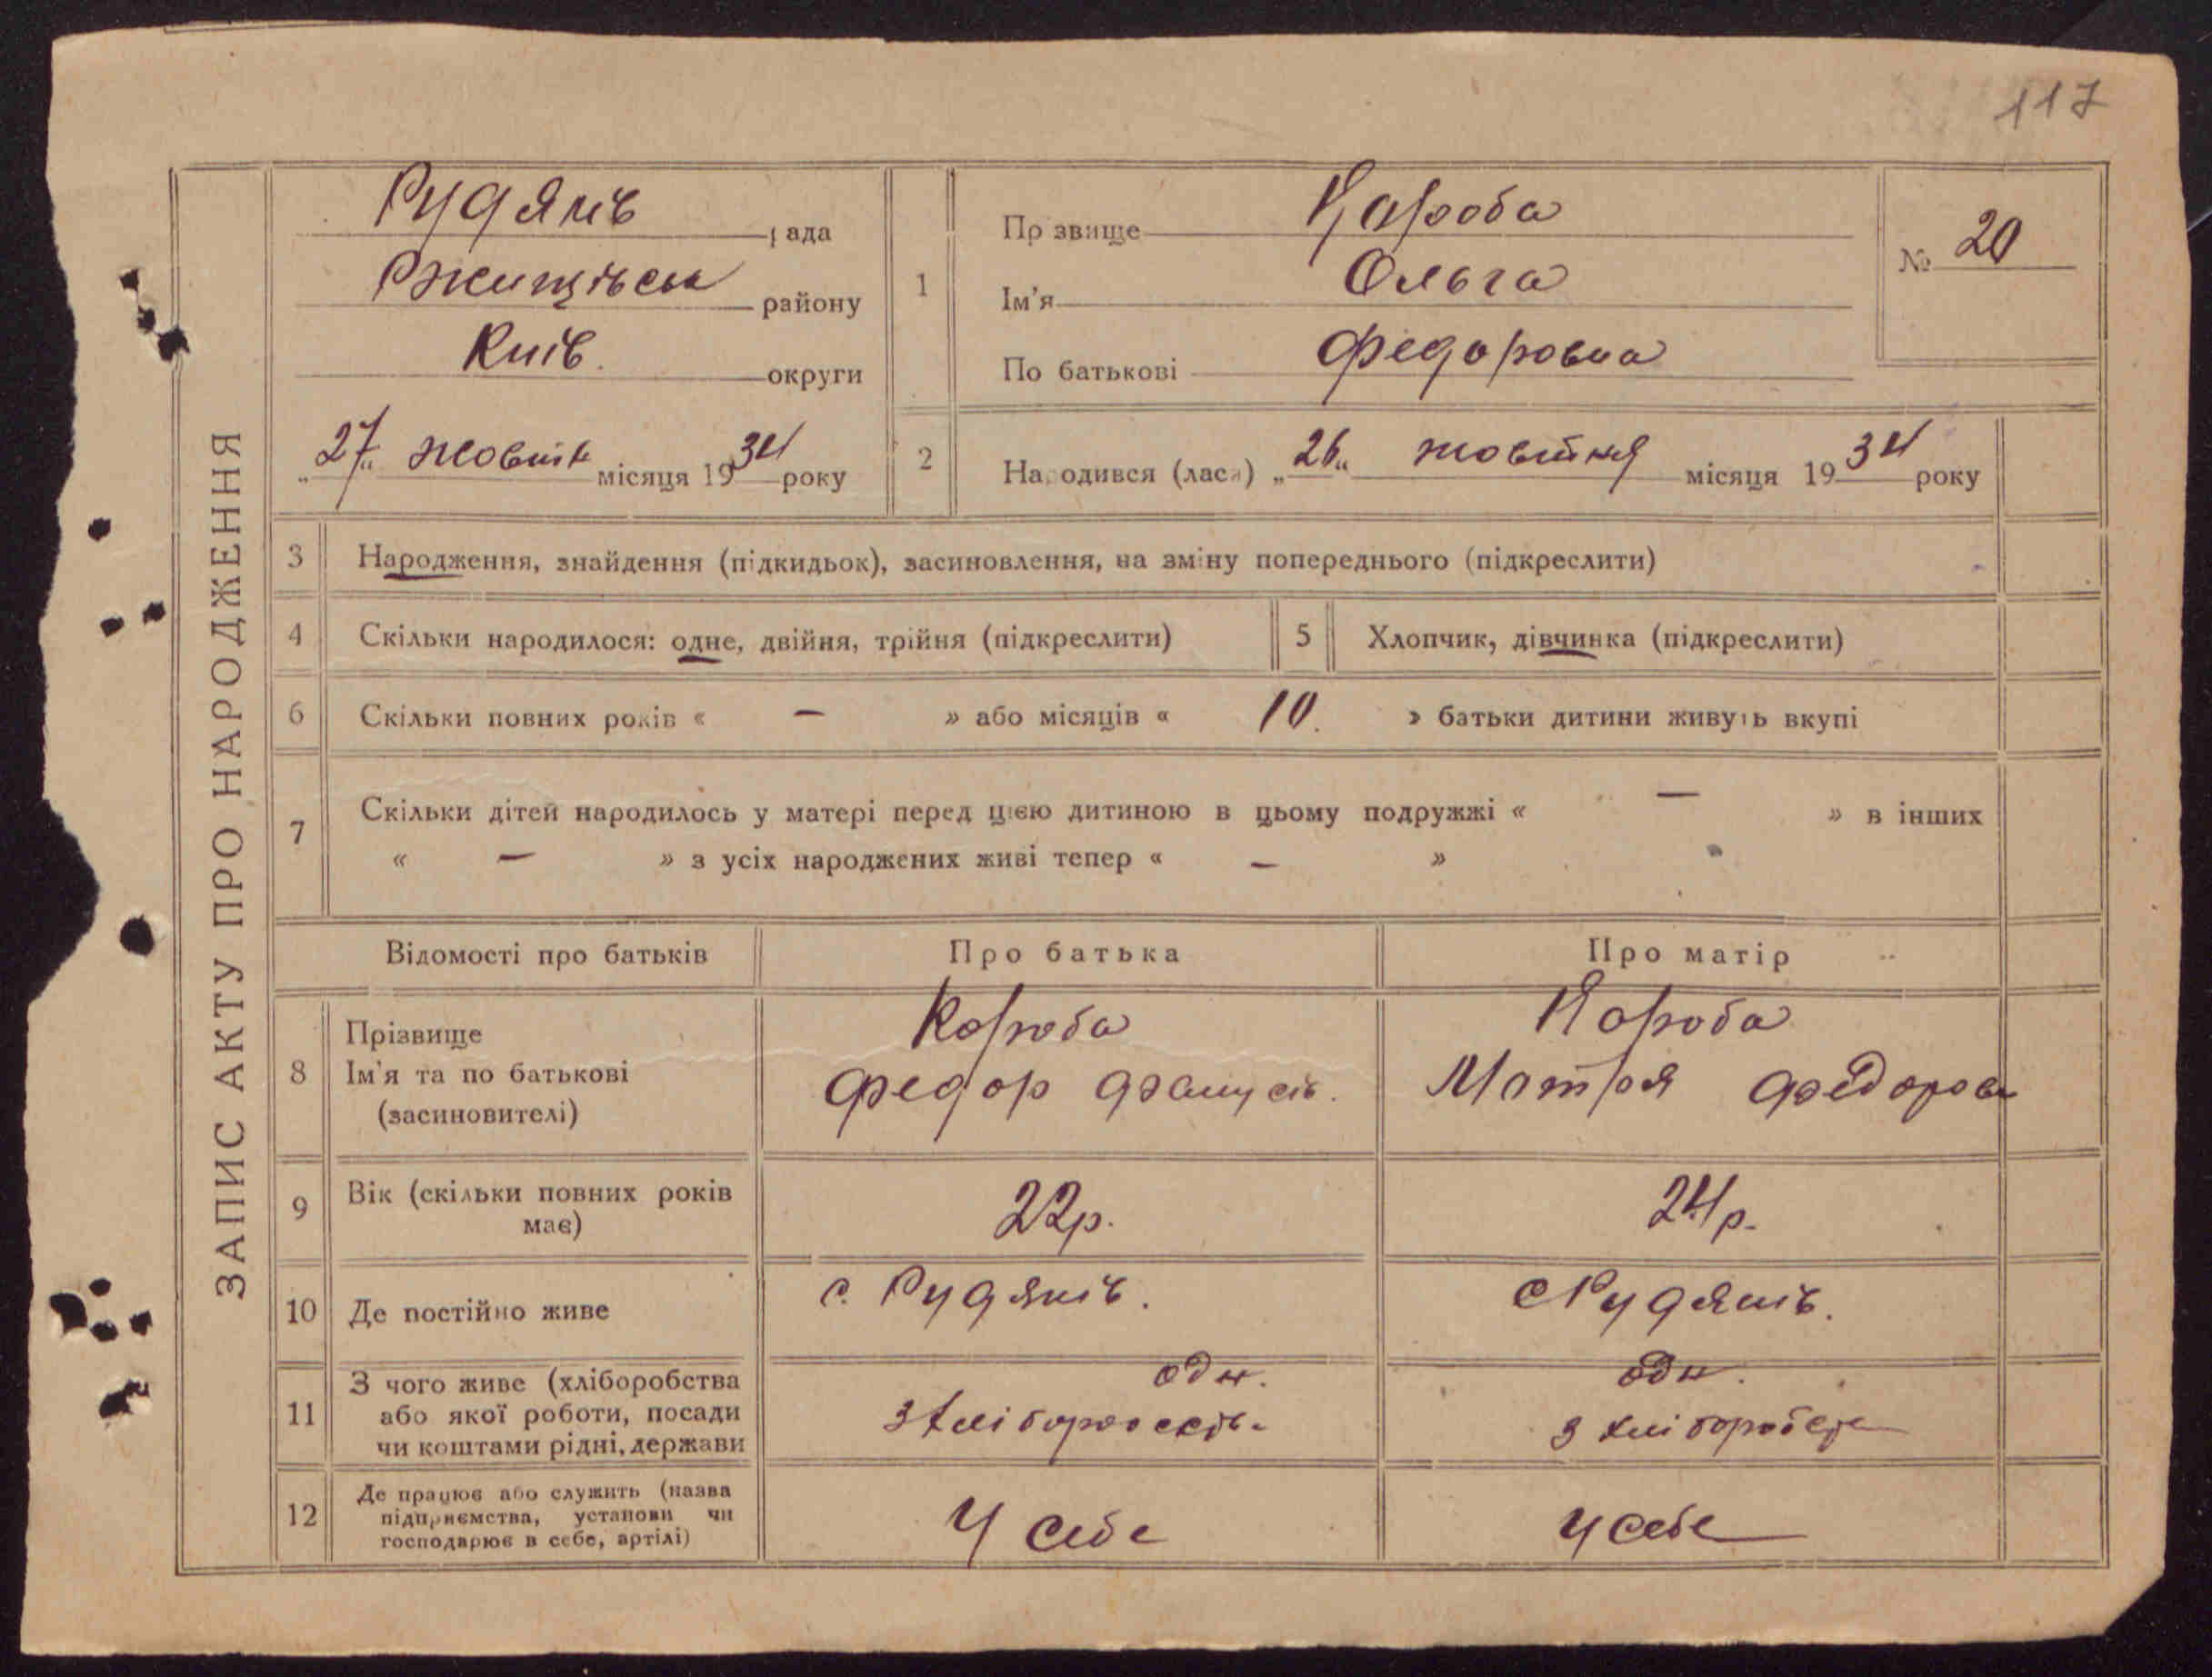 117
ЗАПИС АКТУ ПРО НАРОДЖЕННЯ
Рудяків рада
Ржищівськ району
Київ. округи
„27“ жовтн місяця 1934 року
1
Прізвище Короба
Ім'я Ольга
По батькові Федоровна
№ 20
2
Народився (лася) „26“ жовтня місяця 1934 року
3 Народження, знайдення (підкидьок), засиновлення, на зміну попереднього (підкреслити)
4 Скільки народилося: одне, двійня, трійня (підкреслити) 5 Хлопчик, дівчинка (підкреслити)
6 Скільки повних років « — » або місяців « 10. » батьки дитини живуть вкупі
7 Скільки дітей народилось у матері перед цією дитиною в цьому подружжі « — » в інших
« — » з усіх народжених живі тепер « — »
Відомості про батьків Про батька Про матір
8 Прізвище
Ім'я та по батькові
(засиновителі)
Короба
Федор
Короба
Мотря Федоров
9 Вік (скільки повних років
має)
22р.
24р.
10 Де постійно живе с. Рудяків. с Рудяків.
11 З чого живе (хліборобства
або якої роботи, посади
чи коштами рідні, держави
одн.
з
одн.
з
12 Де працює або служить (назва
підприємства, установи чи
господарює в себе, артілі)
У себе
у себе